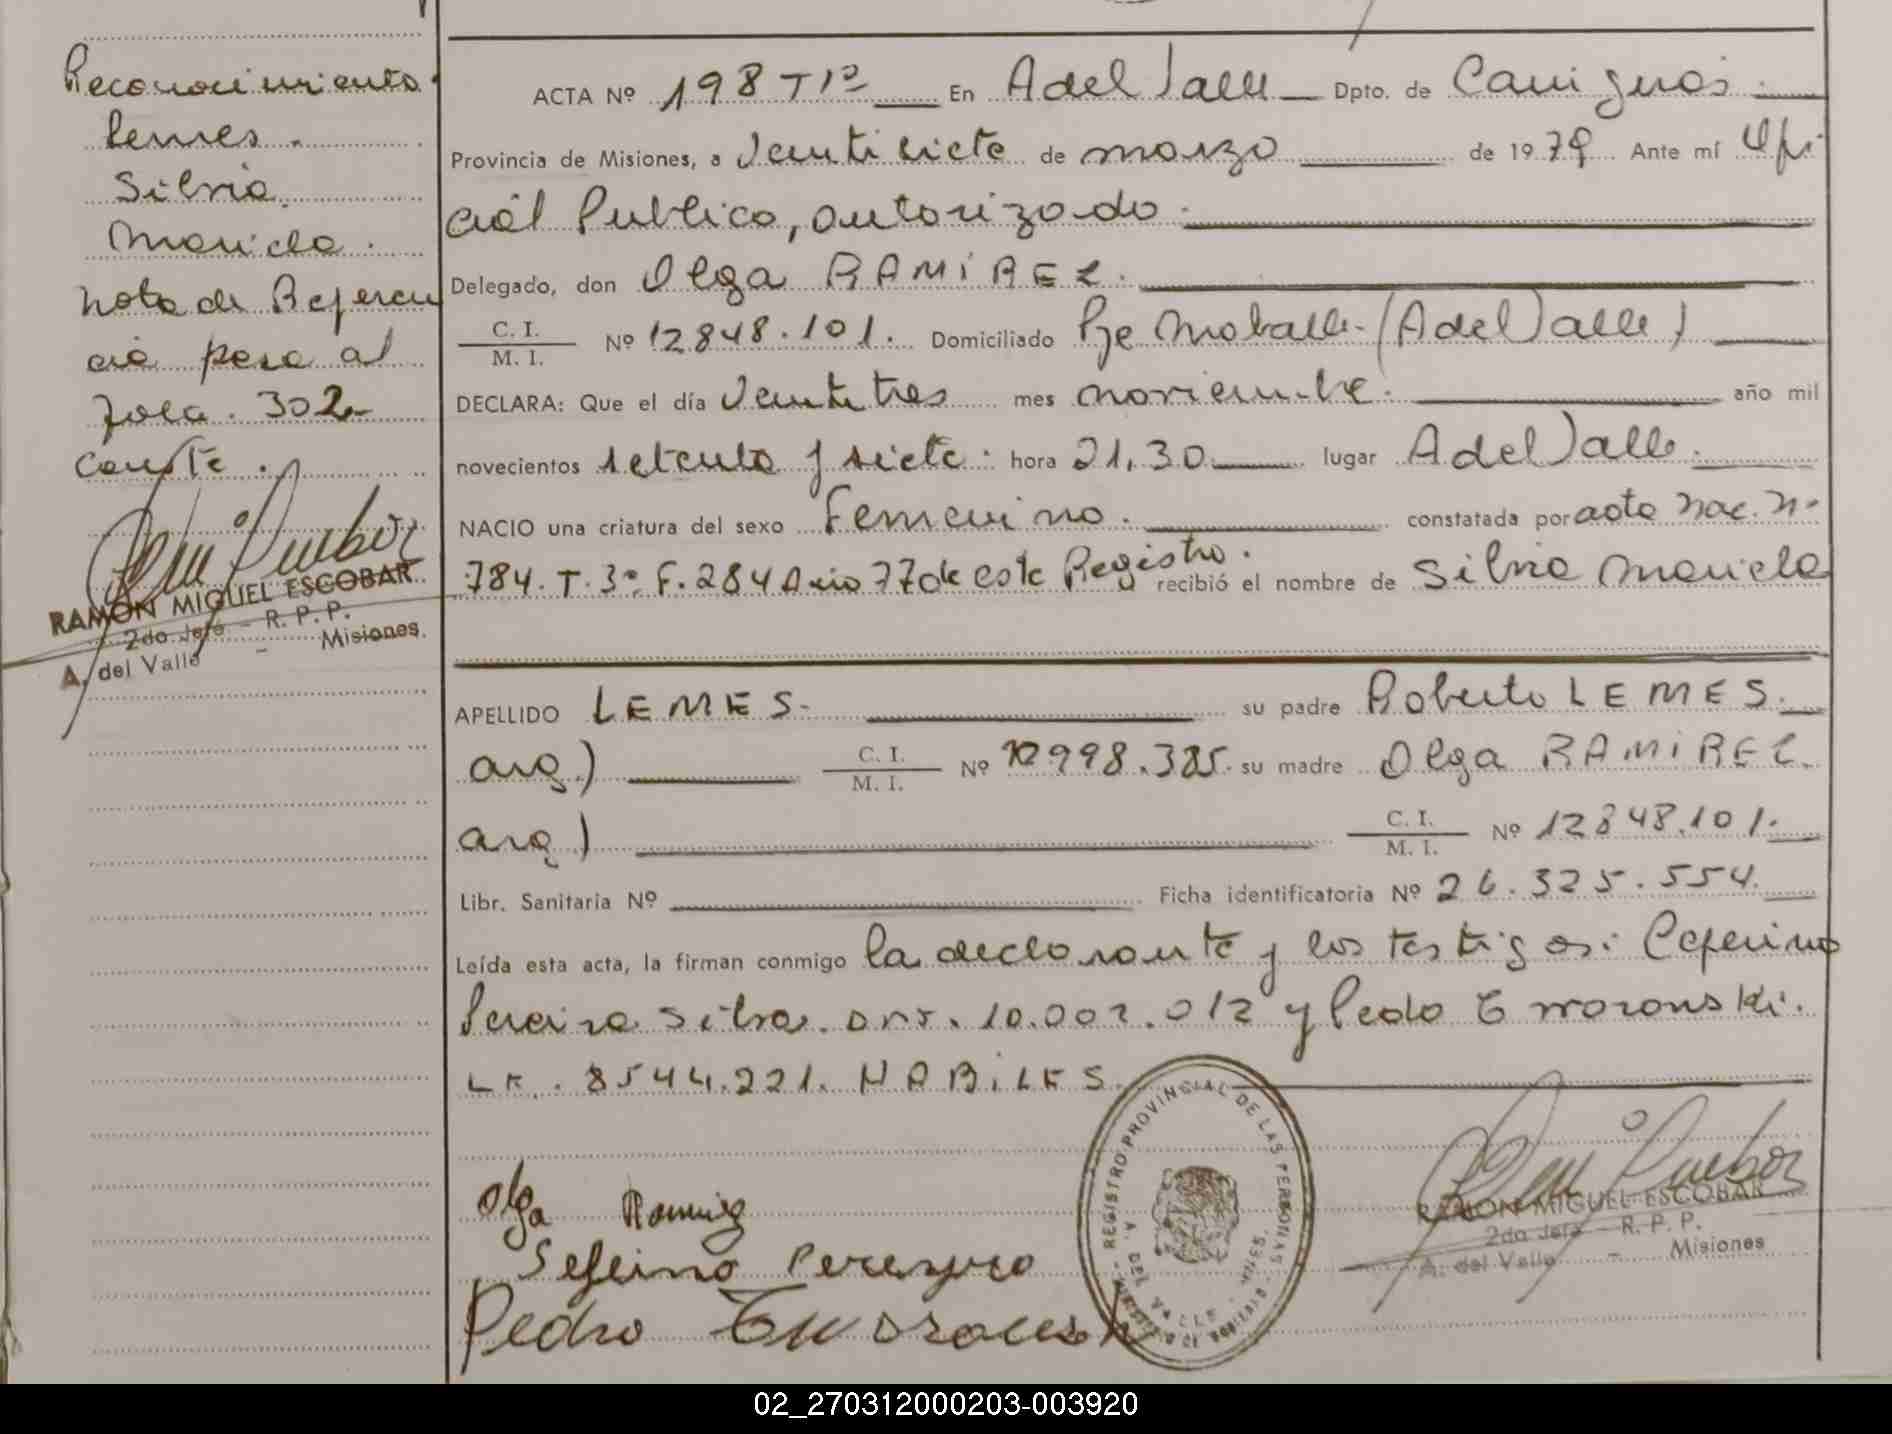 Reconocimiento.
Lemes.
Silvia
Mariela.
Nota de Referen
cia pasa al
folca. 302
Conste.
RAMON MIGUEL ESCOBAR
2do Jefe - R. P. P.
A. del Valle - Misiones.
ACTA Nº 198 T 1º En A del Valle Dpto. de Cainguas.
Provincia de Misiones, a Veintisiete de marzo de 1979 Ante mí Ofi
cial Publico, autorizado.
Delegado, don Olga RAMIREZ.
C. I.
M. I. Nº 12848.101. Domiciliado Pje (A del Valle)
DECLARA: Que el día Veintitres mes noviembre. año mil
novecientos setenta y siete. hora 21,30 lugar A del Valle.
NACIO una criatura del sexo Femenino. constatada por acta Nac. n-
784. T. 3º F. 284 Año 77 de este Registro. recibió el nombre de Silvia Mariela
APELLIDO LEMES. su padre Roberto LEMES.
arg.) C. I.
M. I. Nº 998.385. su madre Olga RAMIREZ.
arg) C. I.
M. I. Nº 12848.101.
Libr. Sanitaria Nº Ficha identificatoria Nº 26.325.554.
Leída esta acta, la firman conmigo la declarante y los testigos: Ceferino
Pereira Silva. DNI. 10.002.012 y Pedo
LE. 8544.221. HABILES.
Olga Ramirez
Sefeino
Pedro
REGISTRO PROVINCIAL DE LAS PERSONAS
A. DEL VALLE - MNES.
RAMON MIGUEL ESCOBAR
2do Jefe - R. P. P.
A. del Valle - Misiones
02_270312000203-003920